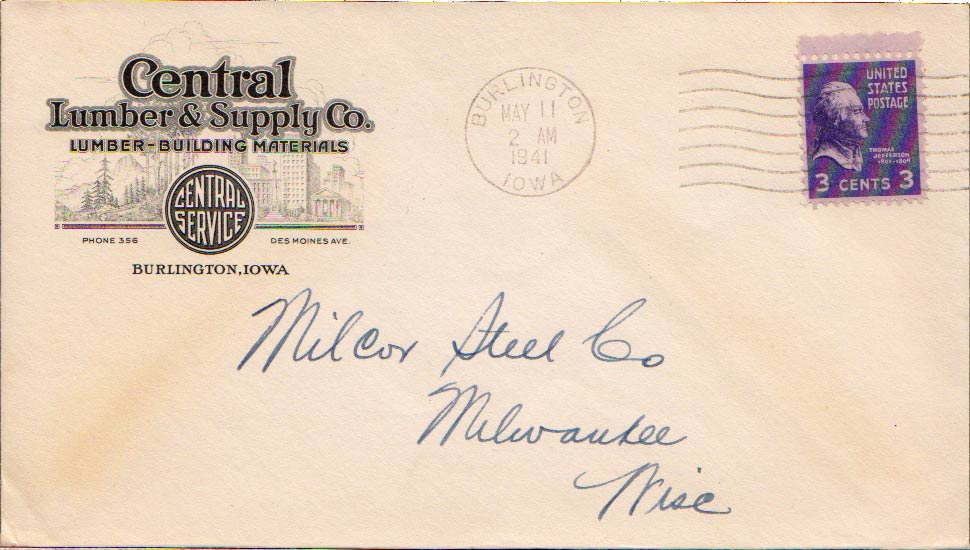 Central
Lumber & Supply Co.
LUMBER-BUILDING MATERIALS
CENTRAL
SERVICE
PHONE 356
DES MOINES AVE.
BURLINGTON, IOWA
BURLINGTON
MAY 11
2 AM
1941
IOWA
UNITED
STATES
POSTAGE
THOMAS
JEFFERSON
1801-1809
3 CENTS 3
Milcor Steel Co
Milwaukee
Wisc